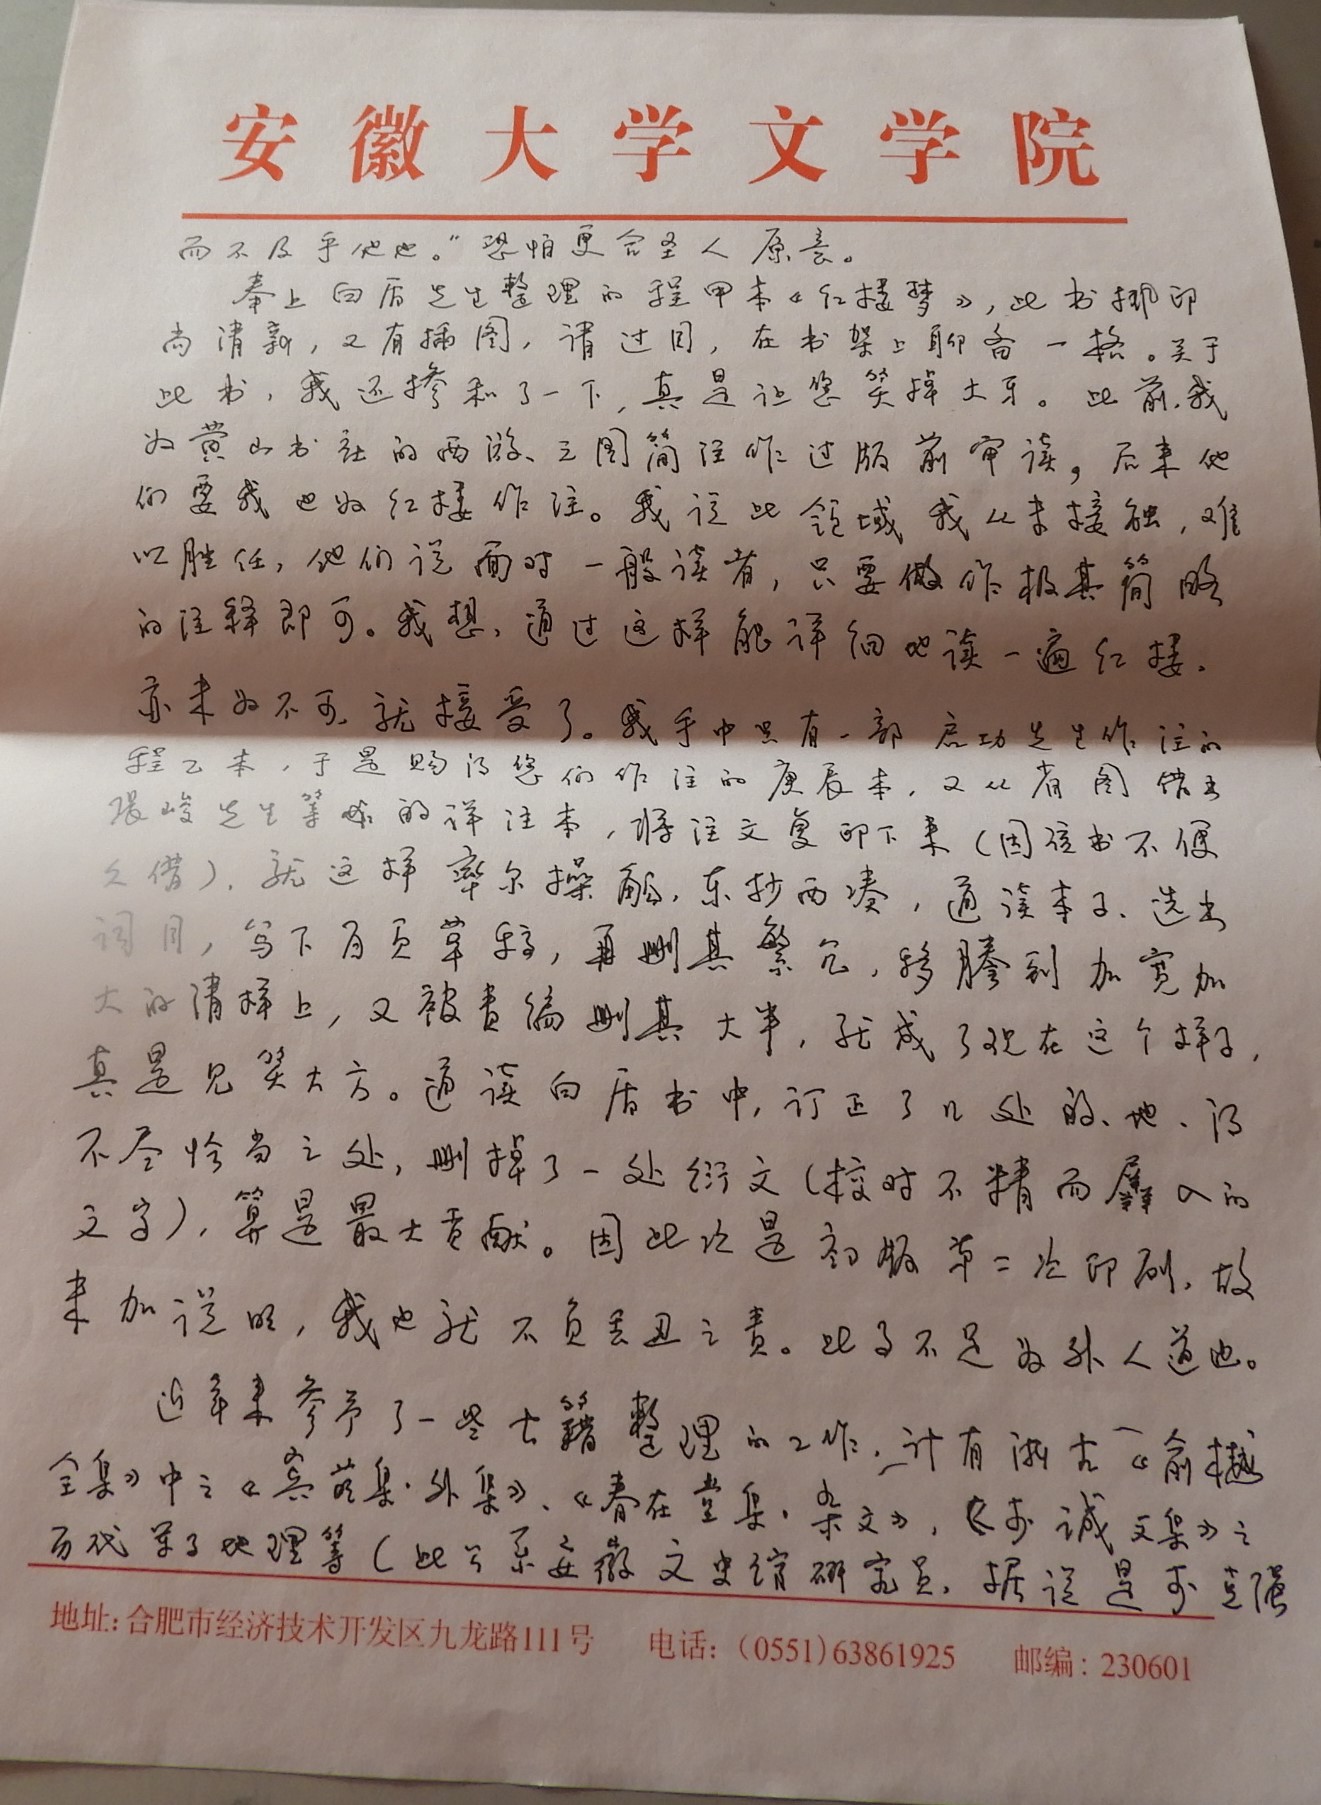 安徽大学文学院
而不及乎他也。”恐怕更合圣人原意。
奉上白盾先生整理的程甲本《红楼梦》，此书排印
尚清新，又有插图，请过目，在书架上聊备一格。关于
此书，我还掺和了一下，真是让您笑掉大牙。此前，我
为黄山书社的西游、三国简注作过版前审读，后来他
们要我也为红楼作注。我说此领域我从未接触，难
以胜任，他们说面对一般读者，只要做作极其简略
的注释即可。我想，通过这样能详细地读一遍红楼，
亦未为不可，就接受了。我手中只有一部启功先生作注的
程乙本，于是购得您们作注的庚辰本，又从省图借出
张峻先生等的详注本，将注文复印下来（因该书不便
久借），就这样率尔操觚，东抄西凑，通读本子、选出
词目，写下百页草稿，再删其繁冗，移誊到加宽加
大的清样上，又被责编删其大半，就成了现在这个样子，
真是见笑大方。通读白盾书中，订正了几处的、地、得
不尽恰当之处，删掉了一处衍文（校时不精而羼入的
文字），算是最大贡献。因此次是初版第二次印刷，故
未加说明，我也就不负丢丑之责。此事不足为外人道也。
近年来参予了一些古籍整理的工作，计有浙古《俞樾
全集》中之《宾萌集·外集》、《春在堂集·杂文》，《李诚文集》之
历代军事地理等（此公系安徽文史馆研究员，据说是李克强
地址：合肥市经济技术开发区九龙路111号 电话：（0551）63861925 邮编：230601